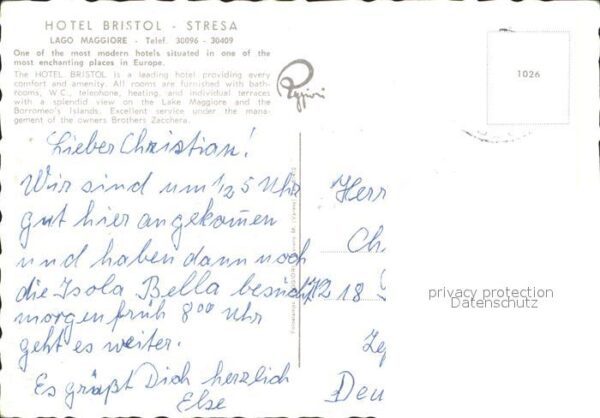 HOTEL BRISTOL - STRESA
LAGO MAGGIORE - Telef. 30096 - 30409
One of the most modern hotels situated in one of the
most enchanting places in Europe.
The HOTEL BRISTOL is a leading hotel providing every
comfort and amenity. All rooms are furnished with bath-
rooms, W.C., telephone, heating, and individual terraces
with a splendid view on the Lake Maggiore and the
Borromeo's Islands. Excellent service under the mana-
gement of the owners Brothers Zacchera.
1026
Lieber Christian!
Wir sind um 1/2 5 Uhr
gut hier angekomen
und haben dann noch
die Isola Bella besucht
morgen früh 8 00 Uhr
geht es weiter.
Es grüßt Dich herzlich
Else
Herr
Ch
218
Deu
privacy protection
Datenschutz